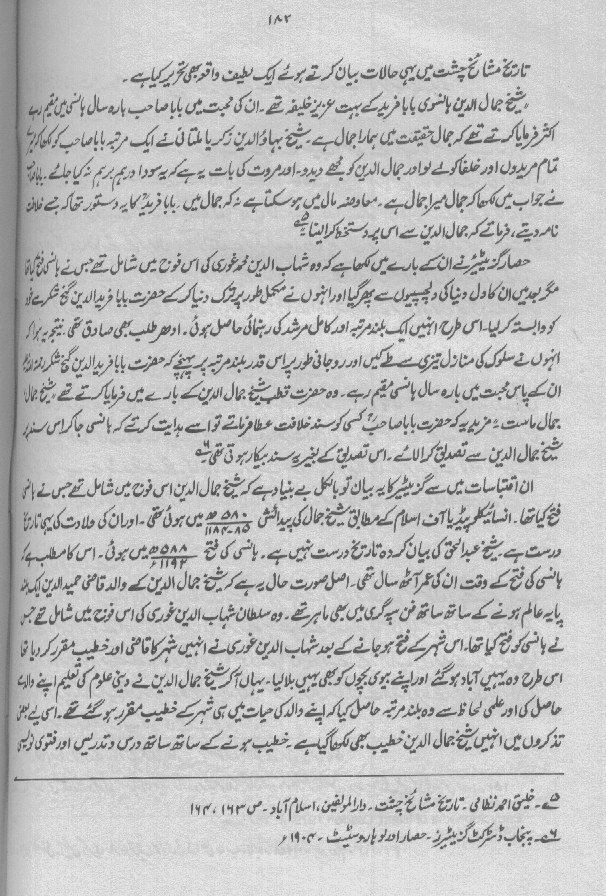 ۱۸۲
تاریخ مشائخ چشت میں یہی حالات بیان کرتے ہوئے ایک لطیف واقعہ بھی تحریر کیا ہے۔
"شیخ جمال الدین ہانسوی بابا فرید کے بہت عزیز خلیفہ تھے۔ ان کی محبت میں بابا صاحب بارہ سال ہانسی میں مقیم رہے
اکثر فرمایا کرتے تھے کہ جمال حقیقت میں ہمارا جمال ہے۔ شیخ بہاؤ الدین زکریا ملتانی نے ایک مرتبہ بابا صاحب کو لکھا کہ
تمام مریدوں اور خلفا کو لے لو اور جمال الدین کو مجھے دیدو۔ اور مروت کی بات یہ ہے کہ یہ سودا درہم برہم نہ کیا جائے۔ بابا
نے جواب میں لکھا کہ جمال میرا جمال ہے۔ معاوضہ مال میں ہو سکتا ہے نہ کہ جمال میں۔ بابا فریدؒ کا یہ دستور تھا کہ جسے خلافت
نامہ دیتے، فرماتے کہ جمال الدین سے اس پر دستخط کرا لینا ۵؎
حصار گزیٹیئر نے ان کے بارے میں لکھا ہے کہ وہ شہاب الدین محمد غوری کی اس فوج میں شامل تھے جس نے ہانسی فتح کیا تھا
مگر بعد میں ان کا دل دنیا کی دلچسپیوں سے پھر گیا اور انہوں نے مکمل طور پر ترک دنیا کر کے حضرت بابا فرید الدین گنج شکر سے خود
کو وابستہ کر لیا۔ اس طرح انہیں ایک بلند مرتبہ اور کامل مرشد کی رہنمائی حاصل ہوئی۔ ادھر طلب بھی صادق تھی۔ نتیجہ یہ ہوا کہ
انہوں نے سلوک کی منازل تیزی سے طے کیں اور روحانی طور پر اس قدر بلند مرتبہ پر پہنچے کہ حضرت بابا فرید الدین گنج شکر
ان کے پاس محبت میں بارہ سال ہانسی مقیم رہے۔ وہ حضرت قطب شیخ جمال الدین کے بارے میں فرمایا کرتے تھے "شیخ جمال
جمال ماست" مزید یہ کہ حضرت بابا صاحبؒ کسی کو سند خلافت عطا فرماتے تو اسے ہدایت کرتے کہ ہانسی جا کر اس سند پر
شیخ جمال الدین سے تصدیق کرا لائے۔ اس تصدیق کے بغیر یہ سند بیکار ہوتی تھی ۶؎
ان اقتباسات میں سے گزیٹیئر کا یہ بیان تو بالکل بے بنیاد ہے کہ شیخ جمال الدین اس فوج میں شامل تھے جس نے ہانسی
فتح کیا تھا۔ انسائیکلوپیڈیا آف اسلام کے مطابق شیخ جمال کی پیدائش ۵۸۰ھ / ۸۵-۱۱۸۴ میں ہوئی تھی۔ اور ان کی ولادت کی یہی تاریخ
درست ہے شیخ عبدالحق کی بیان کردہ تاریخ درست نہیں ہے۔ ہانسی کی فتح ۵۸۸ھ / ۱۱۹۲ء میں ہوئی۔ اس کا مطلب ہے کہ
ہانسی کی فتح کے وقت ان کی عمر آٹھ سال تھی۔ اصل صورت حال یہ ہے کہ شیخ جمال الدین کے والد قاضی حمید الدین ایک بلند
پایہ عالم ہونے کے ساتھ ساتھ فن سپہ گری میں بھی ماہر تھے۔ وہ سلطان شہاب الدین غوری کی اس فوج میں شامل تھے جس
نے ہانسی کو فتح کیا تھا۔ اس شہر کے فتح ہو جانے کے بعد شہاب الدین غوری نے انہیں شہر کا قاضی اور خطیب مقرر کر دیا تھا
اس طرح وہ یہیں آباد ہو گئے اور اپنے بیوی بچوں کو بھی یہیں بلا لیا۔ یہاں آ کر شیخ جمال الدین نے دینی علوم کی تعلیم اپنے والد سے
حاصل کی اور علمی لحاظ سے وہ بلند مرتبہ حاصل کیا کہ اپنے والد کی حیات میں ہی شہر کے خطیب مقرر ہو گئے تھے۔ اسی لیے بعض
تذکروں میں انہیں شیخ جمال الدین خطیب بھی لکھا گیا ہے۔ خطیب ہونے کے ساتھ ساتھ درس و تدریس اور فتویٰ نویسی
۵؎۔ خلیق احمد نظامی۔ تاریخ مشائخ چشت۔ دارالمولفین، اسلام آباد۔ ص ۱۶۳، ۱۶۴
۶؎۔ پنجاب ڈسٹرکٹ گزیٹیرز۔ حصار اور لوہارو سٹیٹ۔ ۱۹۰۴ء